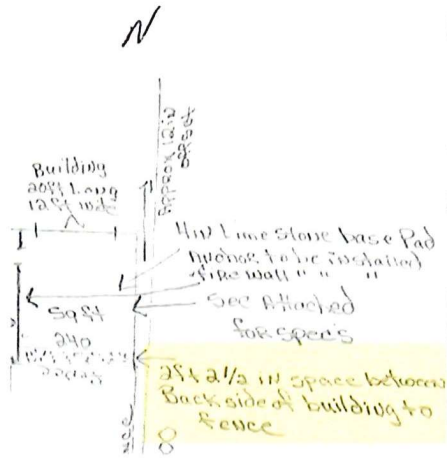 N
Approx 12 in
offset
Building
20ft Long
12ft wide
4in Lime Stone base Pad
to be installed
fire wall " " "
See Attached
for spec's
Sq ft
240
2ft 2 1/2 in space between
Back side of building to
fence